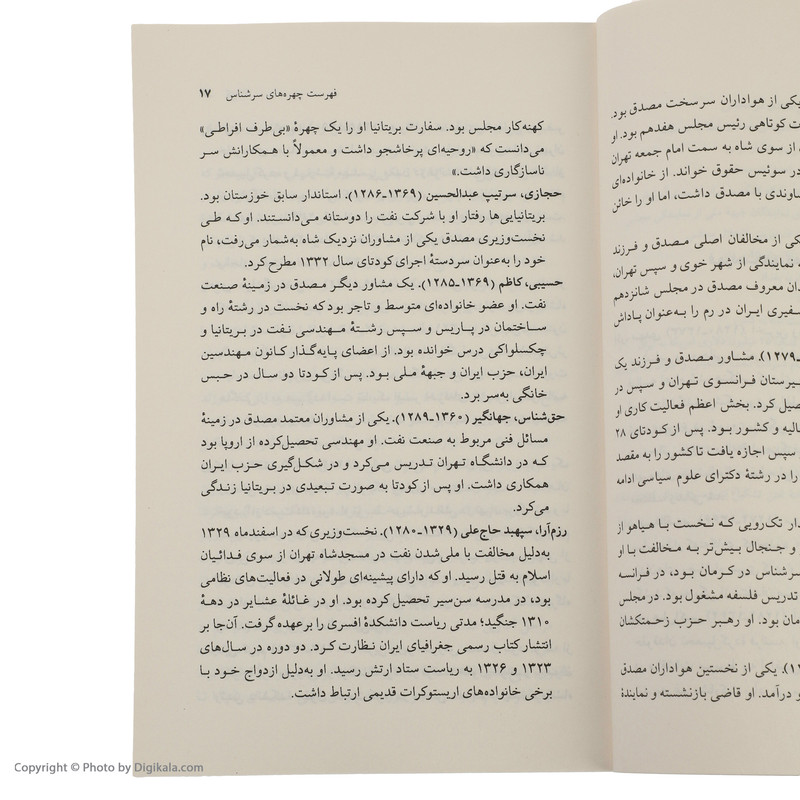 یکی از هواداران سرسخت مصدق بود.
ت کوتاهی رئیس مجلس هفدهم بود. او
ن از سوی شاه به سمت امام جمعه تهران
در سوئیس حقوق خواند. از خانواده‌ای
شاوندی با مصدق داشت، اما او را خائن
یکی از مخالفان اصلی مصدق و فرزند
ه نمایندگی از شهر خوی و سپس تهران،
دان معروف مصدق در مجلس شانزدهم
سفیری ایران در رم را به‌عنوان پاداش
ـ۱۲۷۹). مشاور مصدق و فرزند یک
بیرستان فرانسوی تهران و سپس در
صیل کرد. بخش اعظم فعالیت کاری او
مالیه و کشور بود. پس از کودتای ۲۸
سپس اجازه یافت تا کشور را به مقصد
را در رشتهٔ دکترای علوم سیاسی ادامه
دار تک‌رویی که نخست با هیاهو از
و جنجال بیش‌تر به مخالفت با او
سرشناس در کرمان بود، در فرانسه
تدریس فلسفه مشغول بود. در مجلس
مان بود. او رهبر حزب زحمتکشان
). یکی از نخستین هواداران مصدق
و درآمد. او قاضی بازنشسته و نمایندهٔ
فهرست چهره‌های سرشناس ۱۷
کهنه‌کار مجلس بود. سفارت بریتانیا او را یک چهرهٔ «بی‌طرف افراطی»
می‌دانست که «روحیه‌ای پرخاشجو داشت و معمولاً با همکارانش سر
ناسازگاری داشت.»
حجازی، سرتیپ عبدالحسین (۱۳۶۹ـ۱۲۸۶). استاندار سابق خوزستان بود.
بریتانیایی‌ها رفتار او با شرکت نفت را دوستانه می‌دانستند. او که طی
نخست‌وزیری مصدق یکی از مشاوران نزدیک شاه به‌شمار می‌رفت، نام
خود را به‌عنوان سردستهٔ اجرای کودتای سال ۱۳۳۲ مطرح کرد.
حسیبی، کاظم (۱۳۶۹ـ۱۲۸۵). یک مشاور دیگر مصدق در زمینهٔ صنعت
نفت. او عضو خانواده‌ای متوسط و تاجر بود که نخست در رشتهٔ راه و
ساختمان در پاریس و سپس رشتهٔ مهندسی نفت در بریتانیا و
چکسلواکی درس خوانده بود. از اعضای پایه‌گذار کانون مهندسین
ایران، حزب ایران و جبههٔ ملی بود. پس از کودتا دو سال در حبس
خانگی به‌سر برد.
حق‌شناس، جهانگیر (۱۳۶۰ـ۱۲۸۹). یکی از مشاوران معتمد مصدق در زمینهٔ
مسائل فنی مربوط به صنعت نفت. او مهندسی تحصیل‌کرده از اروپا بود
که در دانشگاه تهران تدریس می‌کرد و در شکل‌گیری حزب ایران
همکاری داشت. او پس از کودتا به صورت تبعیدی در بریتانیا زندگی
می‌کرد.
رزم‌آرا، سپهبد حاج‌علی (۱۳۲۹ـ۱۲۸۰). نخست‌وزیری که در اسفندماه ۱۳۲۹
به‌دلیل مخالفت با ملی‌شدن نفت در مسجدشاه تهران از سوی فدائیان
اسلام به قتل رسید. او که دارای پیشینه‌ای طولانی در فعالیت‌های نظامی
بود، در مدرسه سن‌سیر تحصیل کرده بود. او در غائلهٔ عشایر در دههٔ
۱۳۱۰ جنگید؛ مدتی ریاست دانشکدهٔ افسری را برعهده گرفت. آن‌جا بر
انتشار کتاب رسمی جغرافیای ایران نظارت کرد. دو دوره در سال‌های
۱۳۲۳ و ۱۳۲۶ به ریاست ستاد ارتش رسید. او به‌دلیل ازدواج خود با
برخی خانواده‌های اریستوکرات قدیمی ارتباط داشت.
Copyright © Photo by Digikala.com